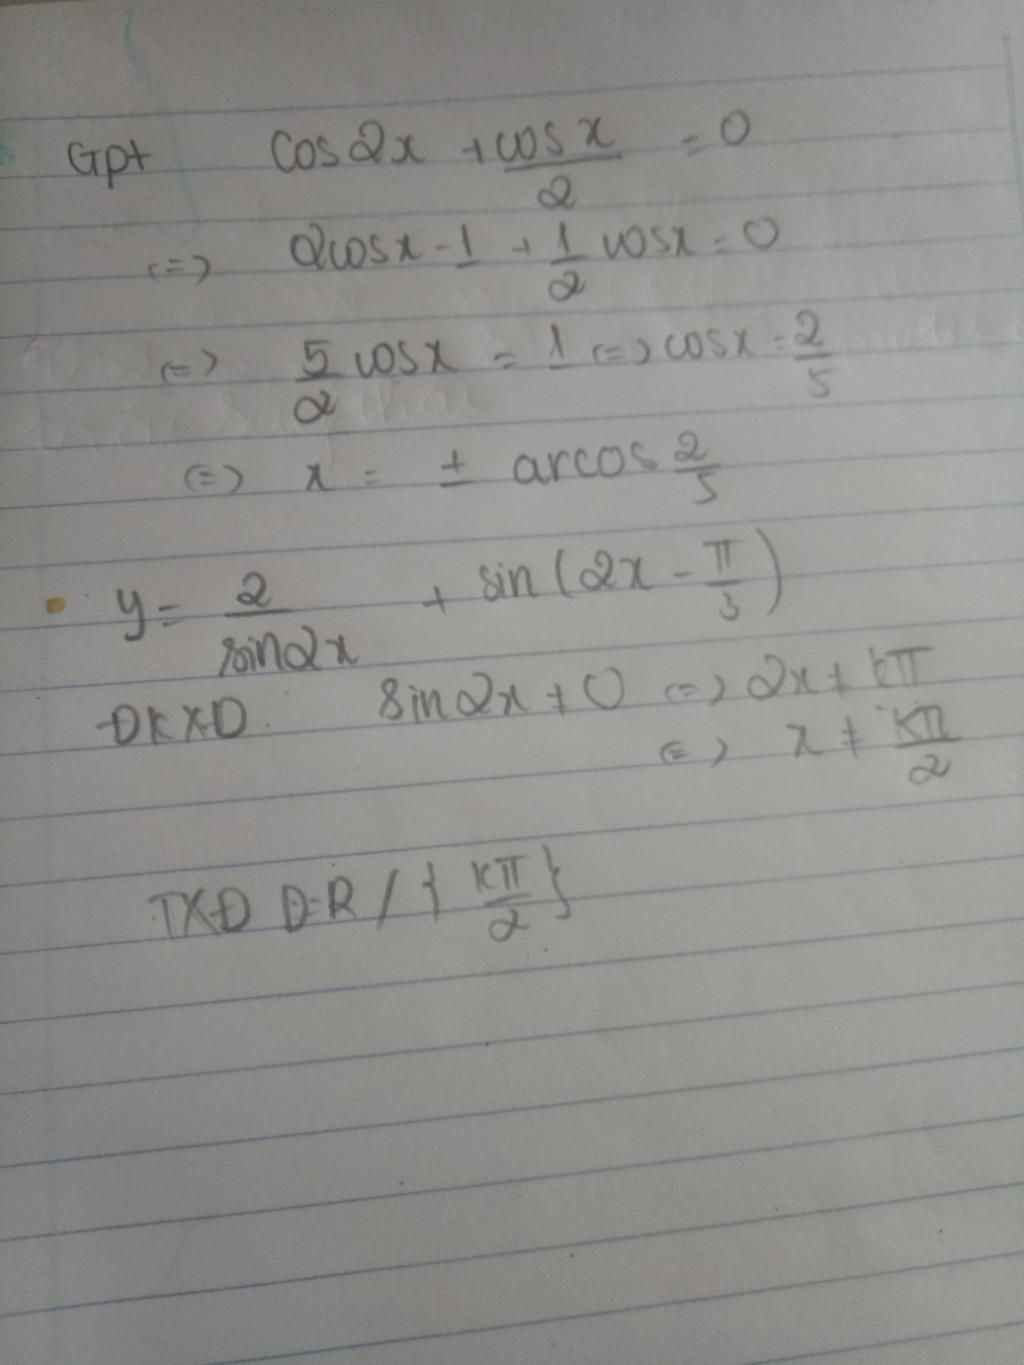 Gpt cos2x + cosx/2 = 0
(=) 2cosx - 1 + 1/2 cosx = 0
(=) 5/2 cosx = 1 (=) cosx = 2/5
(=) x = ± arcos 2/5
y = 2/sin2x + sin(2x - π/3)
ĐKXĐ. sin2x ≠ 0 (=) 2x ≠ kπ
(=) x ≠ kπ/2
TXĐ D=R / { kπ/2 }